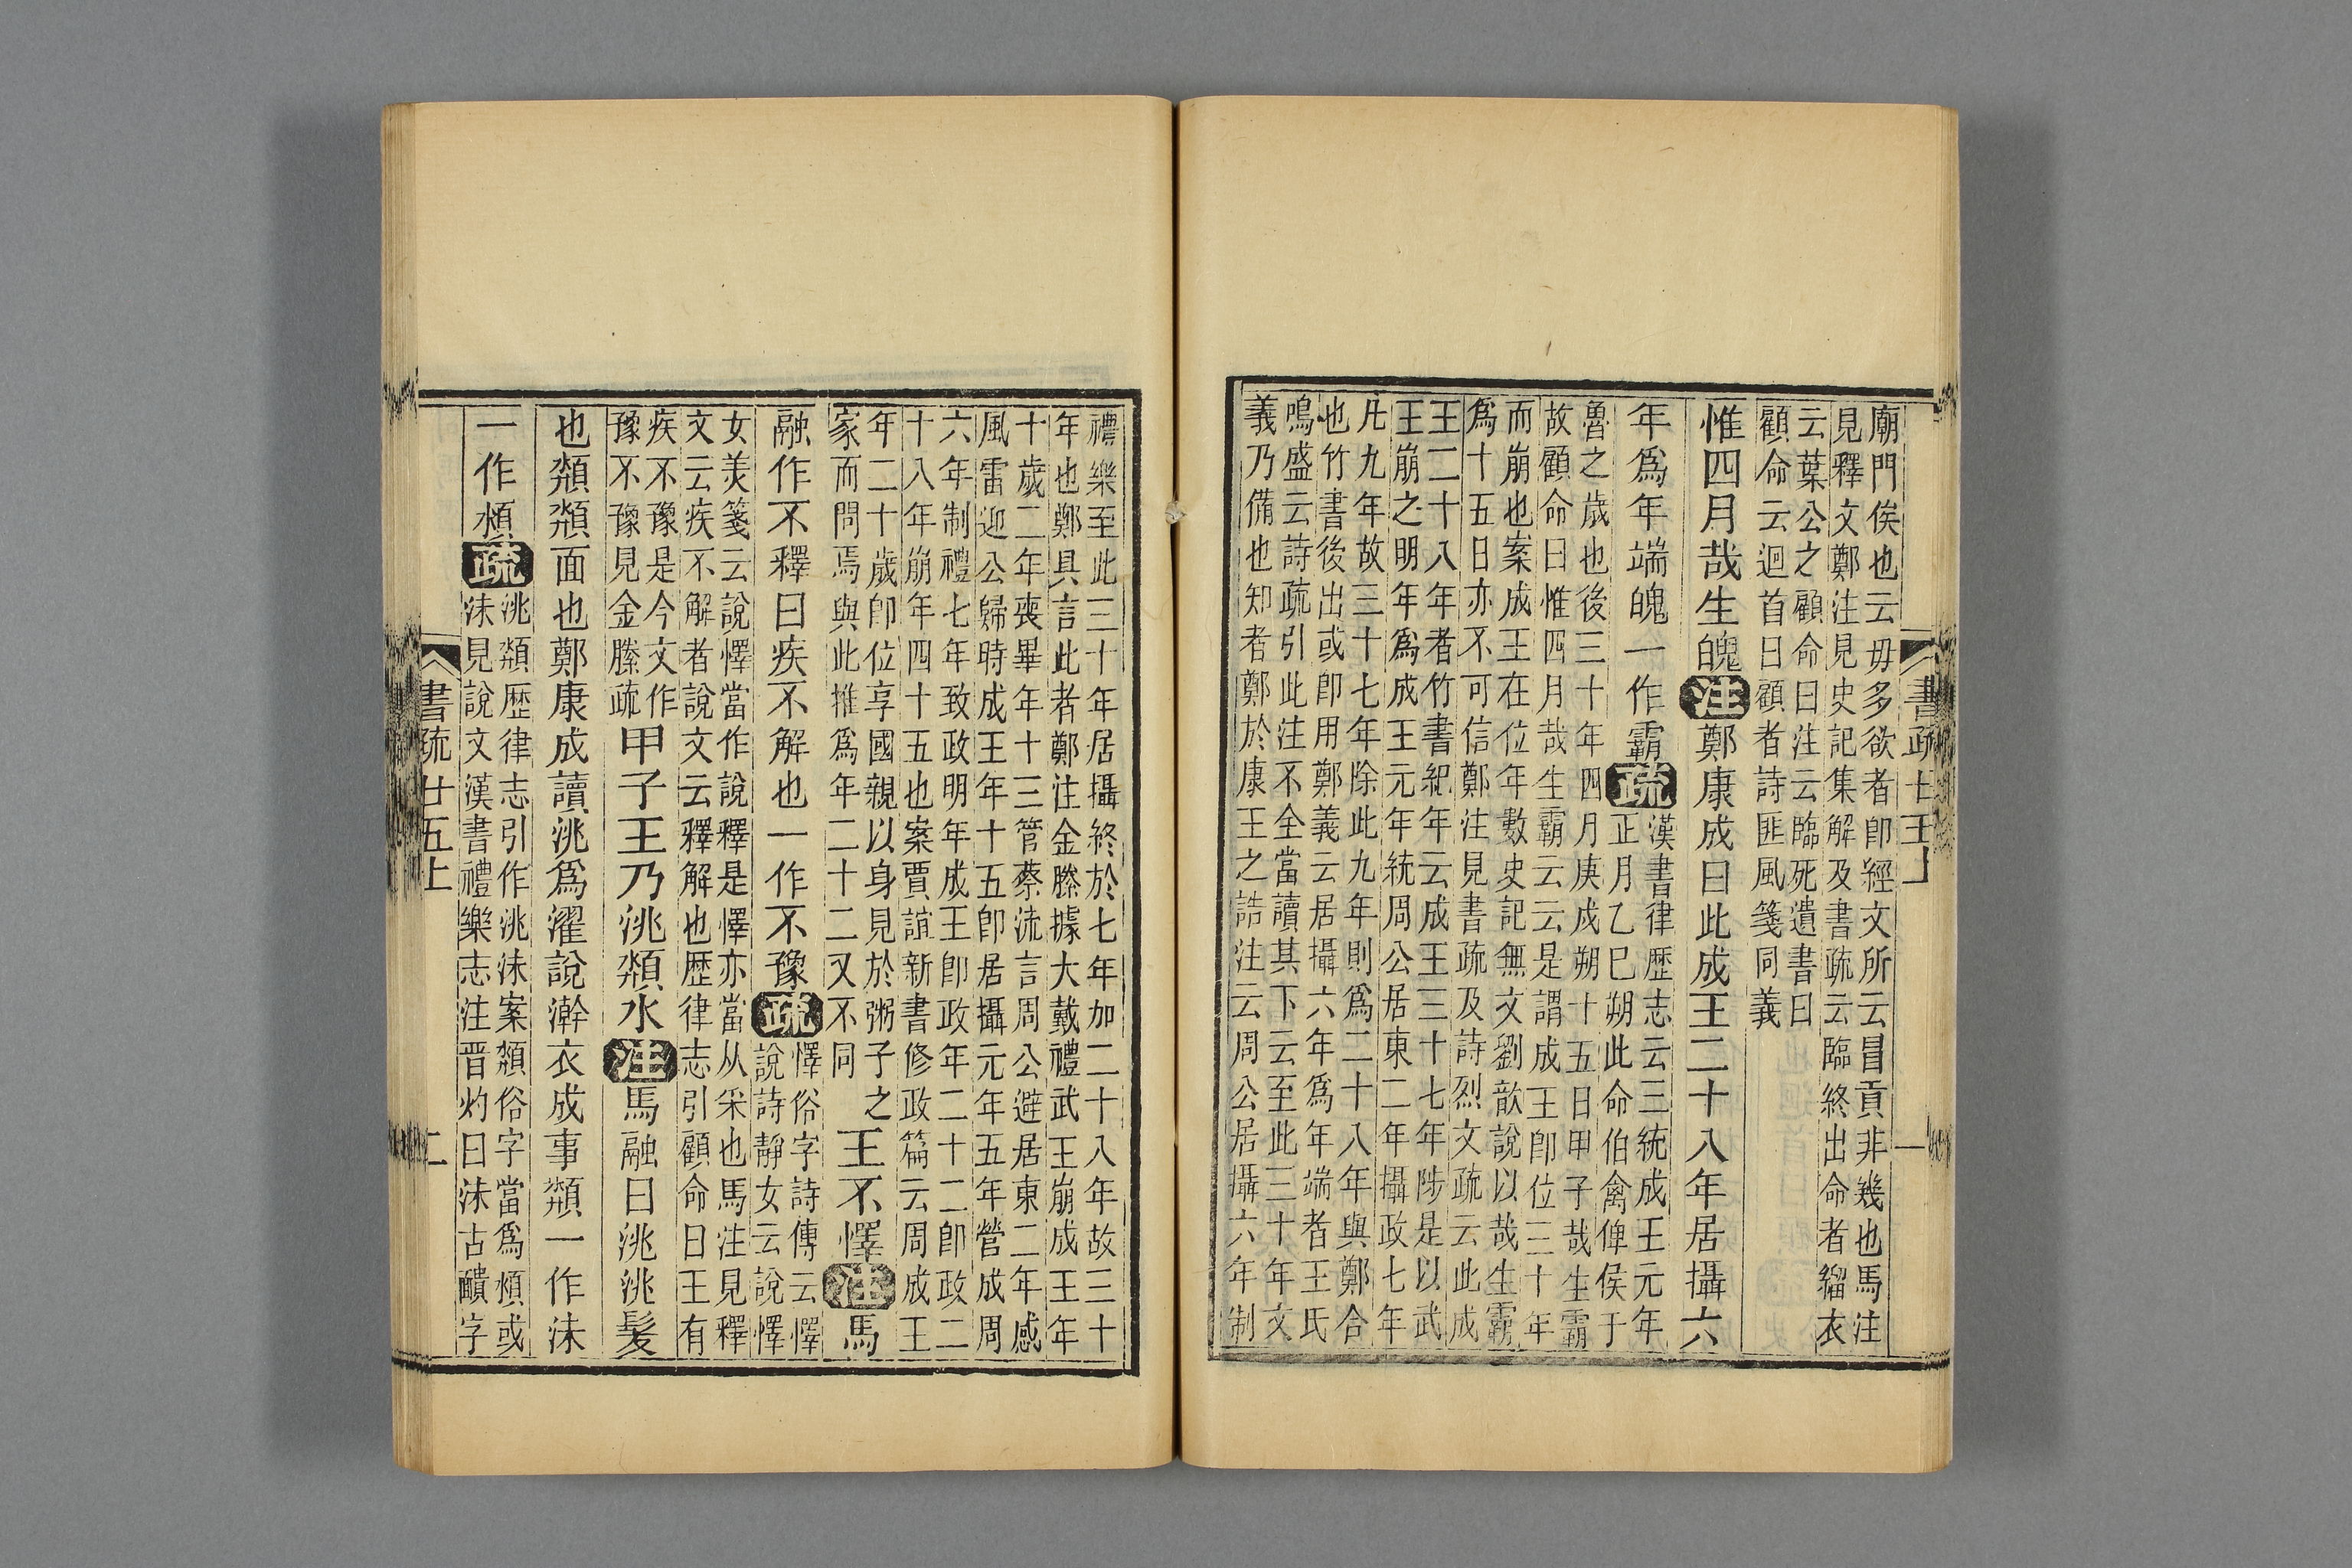 書疏廿五上
一
廟門俟也云毋多欲者卽經文所云冒貢非幾也馬注
見釋文鄭注見史記集解及書疏云臨終出命者緇衣
云葉公之顧命曰注云臨死遺書曰
顧命云迴首曰顧者詩匪風箋同義
惟四月哉生魄注鄭康成曰此成王二十八年居攝六
年爲年端魄一作霸疏
漢書律歷志云三統成王元年
正月乙巳朔此命伯禽俾侯于
魯之歲也後三十年四月庚戌朔十五日甲子哉生霸
故顧命曰惟四月哉生霸云云是謂成王卽位三十年
而崩也案成王在位年數史記無文劉歆說以哉生霸
爲十五日亦不可信鄭注見書疏及詩烈文疏云此成
王二十八年者竹書紀年云成王三十七年陟是以武
王崩之明年爲成王元年統周公居東二年攝政七年
凡九年故三十七年除此九年則爲二十八年與鄭合
也竹書後出或卽用鄭義云居攝六年爲年端者王氏
鳴盛云詩疏引此注不全當讀其下云至此三十年文
義乃備也知者鄭於康王之誥注云周公居攝六年制
禮樂至此三十年居攝終於七年加二十八年故三十
年也鄭具言此者鄭注金縢據大戴禮武王崩成王年
十歲二年喪畢年十三管蔡流言周公避居東二年感
風雷迎公歸時成王年十五卽居攝元年五年營成周
六年制禮七年致政明年成王卽政年二十二卽政二
十八年崩年四十五也案賈誼新書修政篇云周成王
年二十歲卽位享國親以身見於粥子之
家而問焉與此推爲年二十二又不同
王不懌注馬
融作不釋曰疾不解也一作不豫疏
懌俗字詩傳云懌
說詩靜女云說懌
女美箋云說懌當作說釋是懌亦當从釆也馬注見釋
文云疾不解者說文云釋解也歷律志引顧命曰王有
疾不豫是今文作
豫不豫見金縢疏
甲子王乃洮頮水注馬融曰洮洮髮
也頮頮面也鄭康成讀洮爲濯說澣衣成事頮一作沬
一作湏疏
洮頮歷律志引作洮沬案頮俗字當爲湏或
沬見說文漢書禮樂志注晉灼曰沬古靧字
書疏廿五上
二